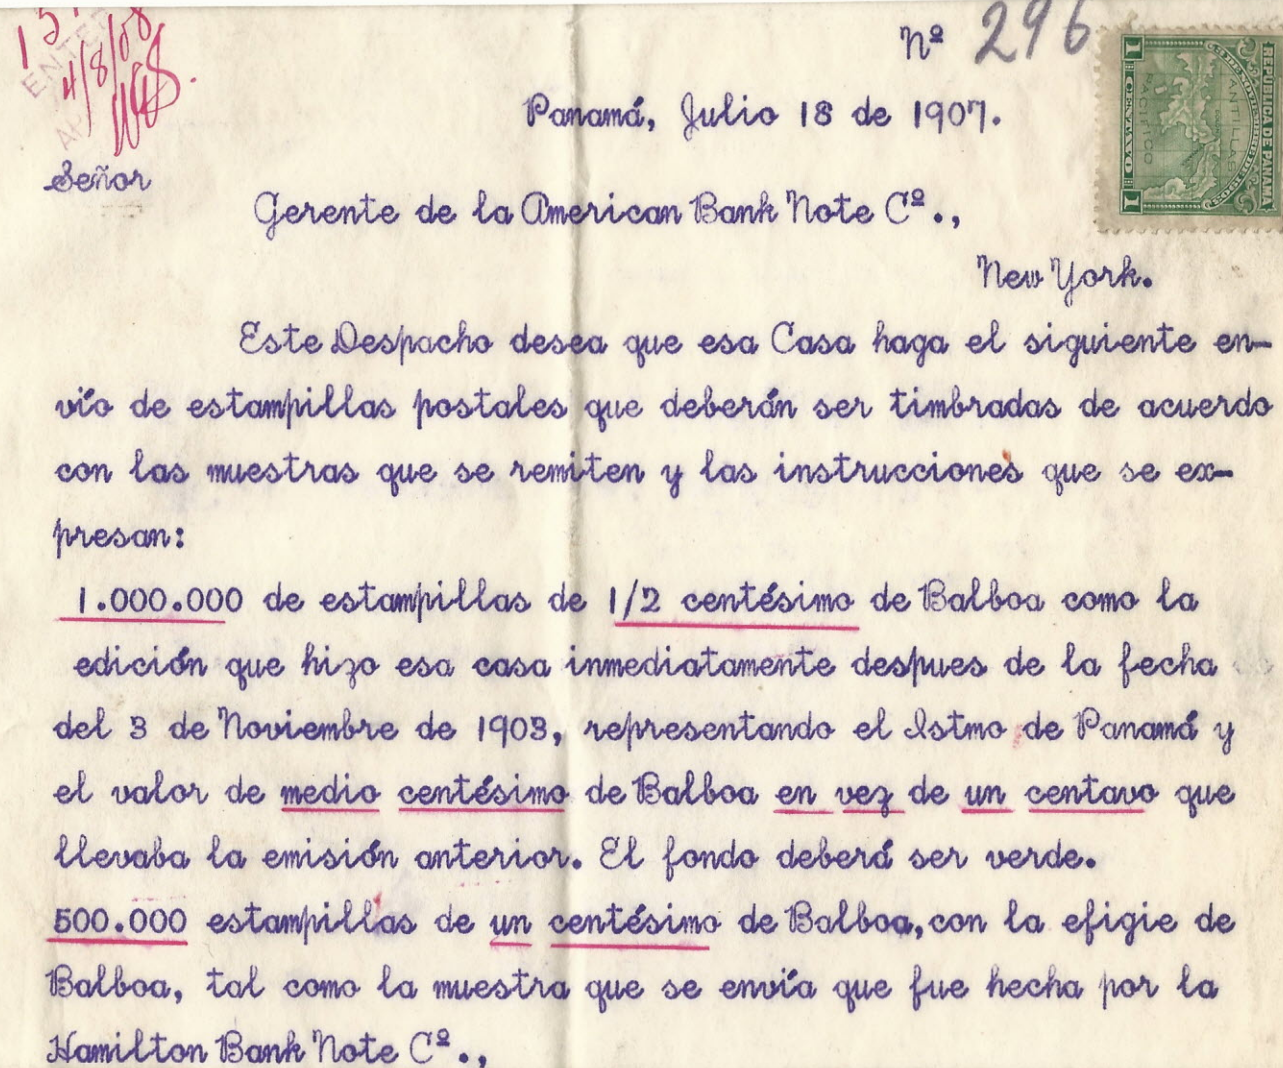 Nº 296
Panamá, Julio 18 de 1907.
Señor
Gerente de la American Bank Note Cº.,
New York.
Este Despacho desea que esa Casa haga el siguiente en-
vío de estampillas postales que deberán ser timbradas de acuerdo
con las muestras que se remiten y las instrucciones que se ex-
presan:
1.000.000 de estampillas de 1/2 centésimo de Balboa como la
edición que hizo esa casa inmediatamente despues de la fecha
del 3 de Noviembre de 1903, representando el Istmo de Panamá y
el valor de medio centésimo de Balboa en vez de un centavo que
llevaba la emisión anterior. El fondo deberá ser verde.
500.000 estampillas de un centésimo de Balboa, con la efigie de
Balboa, tal como la muestra que se envía que fue hecha por la
Hamilton Bank Note Cº.,
REPUBLICA DE PANAMA
ANTILLAS
PACIFICO
1 CENTAVO 1
4/8/08